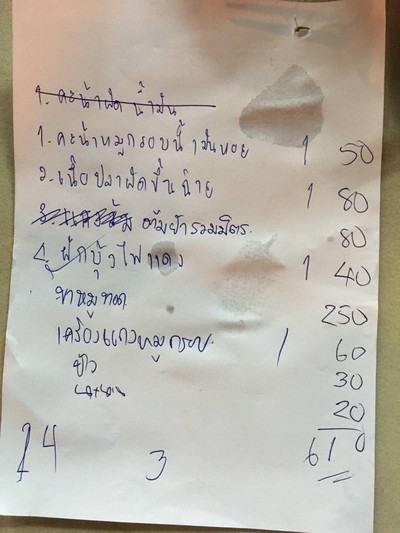 1. คะน้าผัดน้ำมัน
1. คะน้าหมูกรอบน้ำมันหอย 1 50
2. เนื้อปลาผัดขึ้นฉ่าย 1 80
ต้มยำรวมมิตร 80
4. ผักบุ้งไฟแดง 1 40
ขาหมูทอด 250
เครื่องแกงหมูกรอบ 1 60
ข้าว 30
20
610
14 3